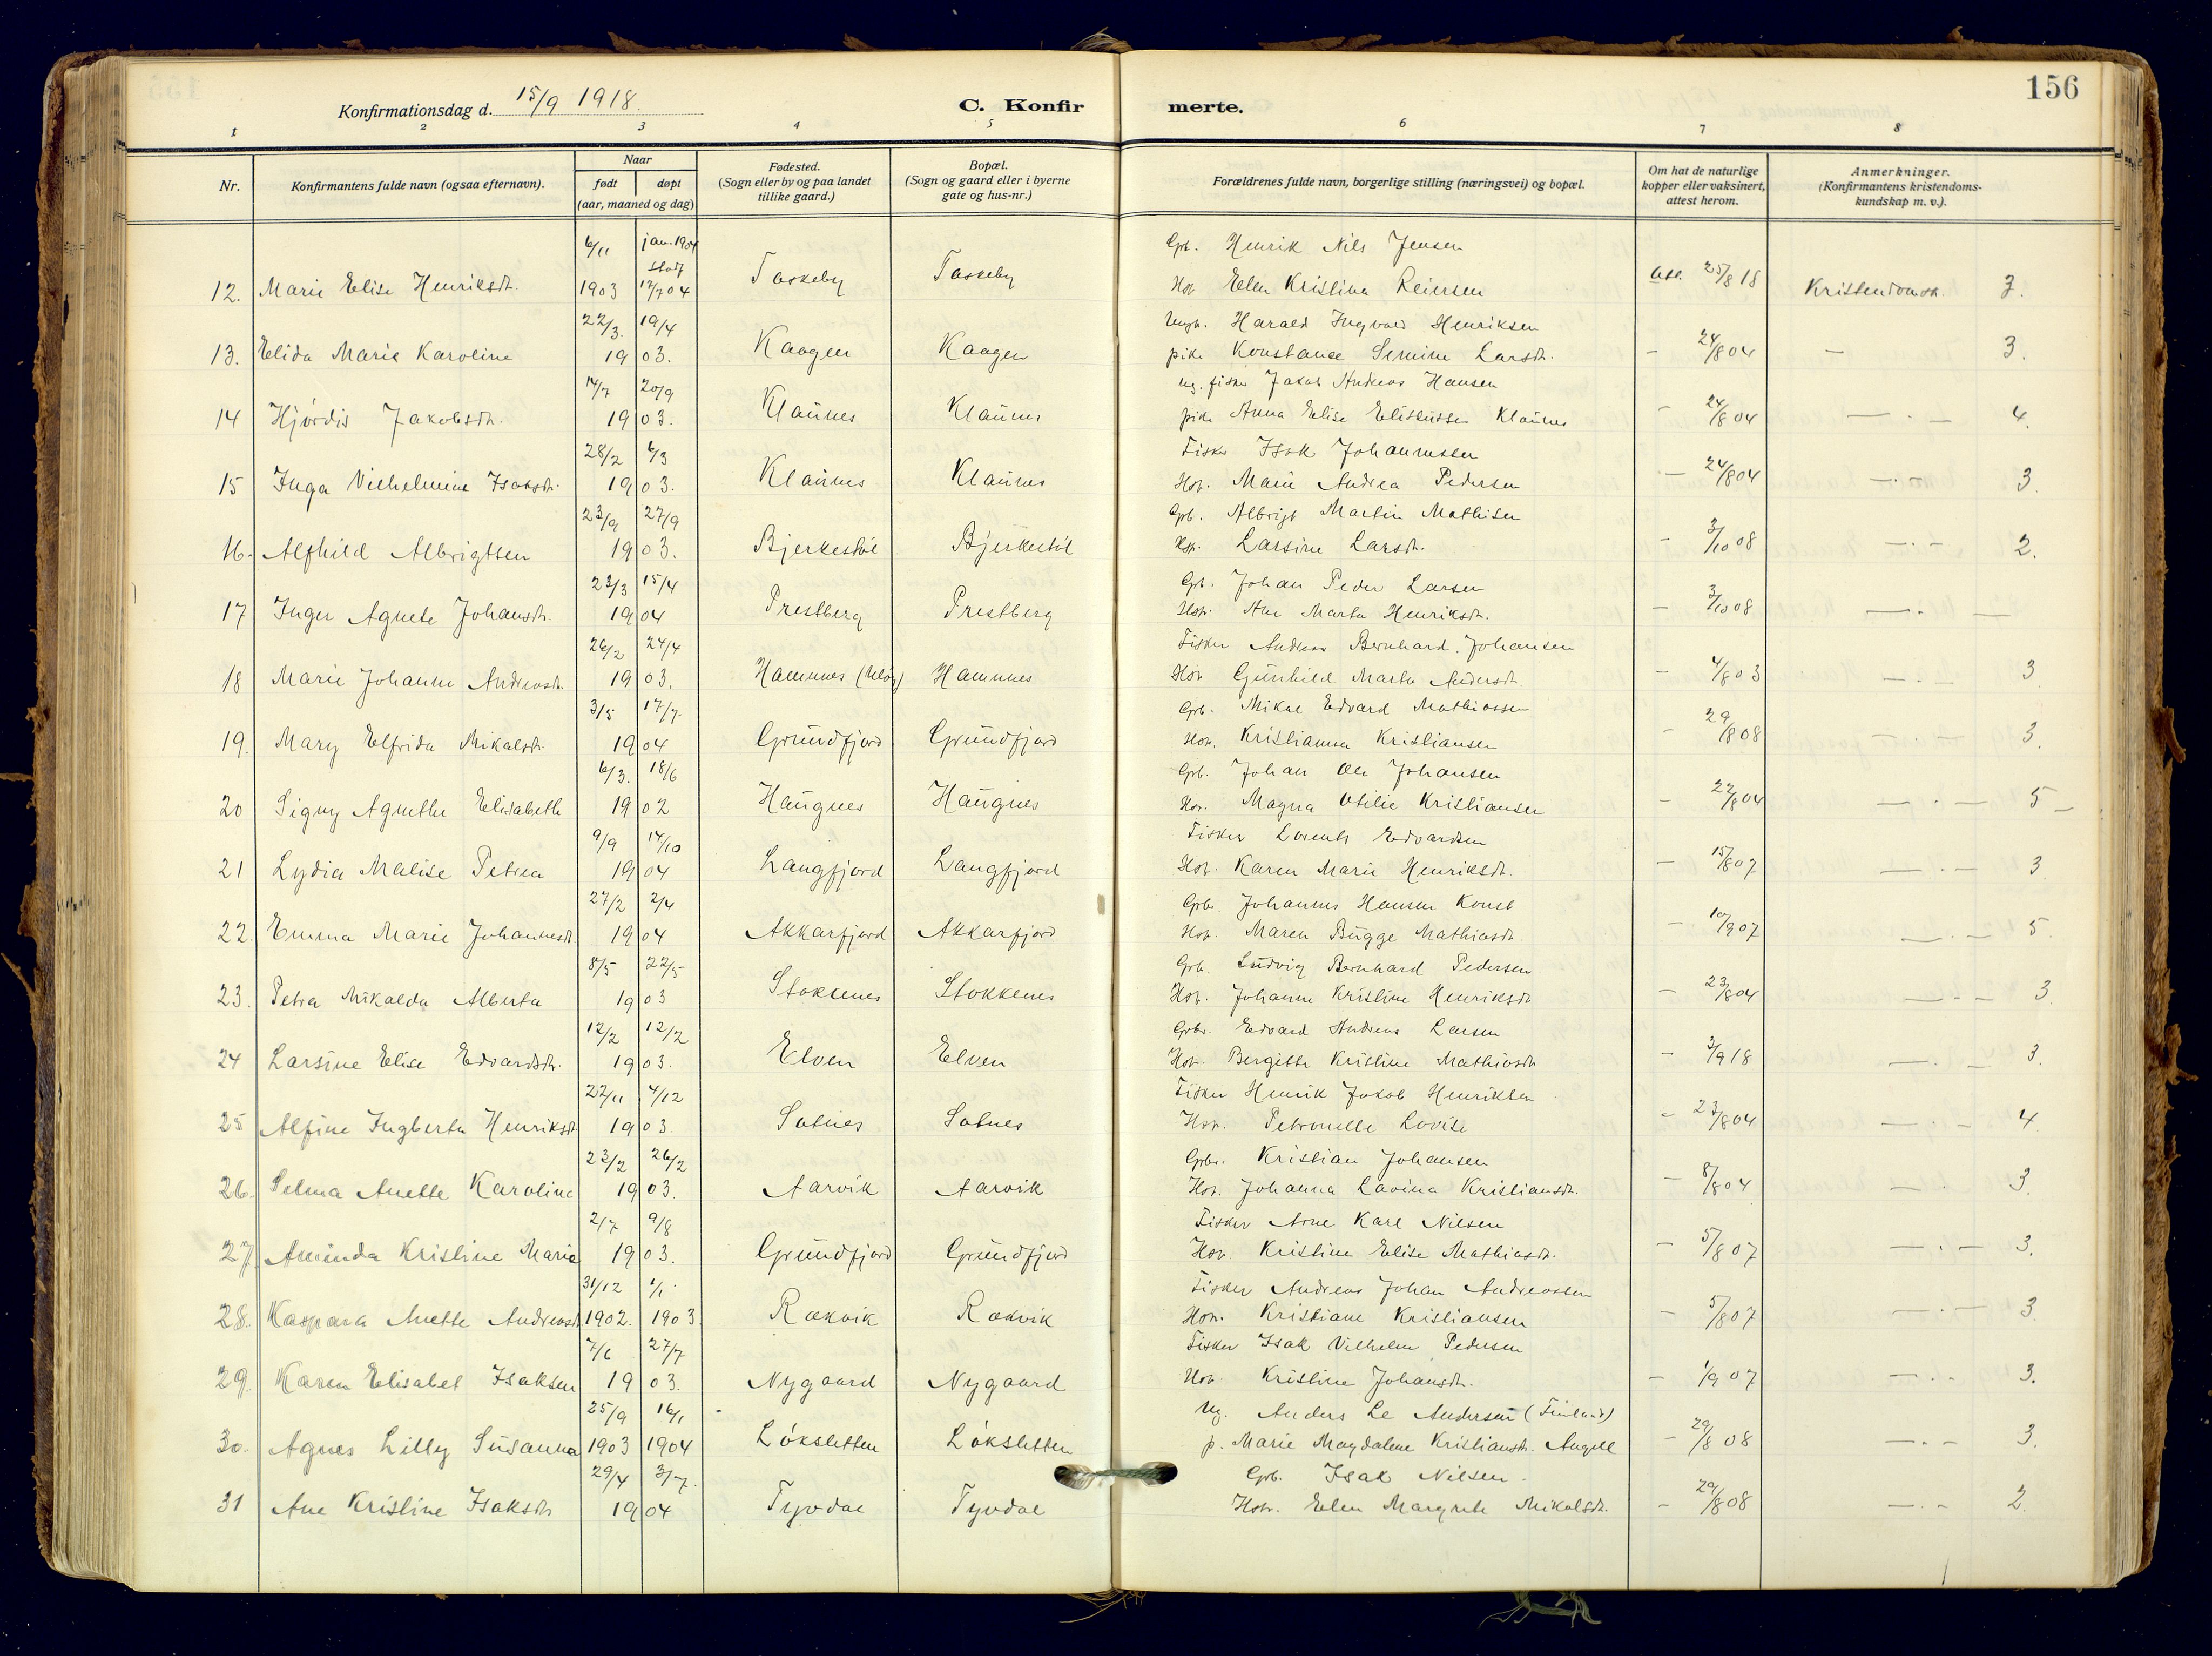 156
Konfirmationsdag d. 15/9 1918.
C. Konfir merte.
1 2 3 4 5 6 7 8
Nr.
Konfirmantens fulde navn (ogsaa efternavn).
Naar
født
døpt
(aar, maaned og dag)
Fødested.
(Sogn eller by og paa landet
tillike gaard.)
Bopæl.
(Sogn og gaard eller i byerne
gate og hus-nr.)
Forældrenes fulde navn, borgerlige stilling (næringsvei) og bopæl.
Om hat de naturlige
kopper eller vaksinert,
attest herom.
Anmerkninger.
(Konfirmantens kristendoms-
kundskap m. v.).
6/11 jan. 1904 Gbr. Henrik Nils Jensen
12. Marie Elise Henriksdt. 1903 17/7 04 Taskeby Taskeby Hst. Elen Kristina Reiersen 25/8 18 3.
22/3. 19/4 Ungk. Harald Ingvald Henriksen
13. Elida Marie Karoline 1903. Kaagen Kaagen pike Konstance Larsdt. - 24/8 04 - 3.
14/7 20/9 ug. fisker Jakob Andreas Hansen
14 Hjördis Jakobsdt. 1903. Klaunes Klaunes pike Anna Elise Klaunes - 24/8 04 - . - 4.
28/2 6/3 Fisker Isak Johannessen
15 Inga Vilhelmine Isaksdt. 1903. Klaunes Klaunes Hst. Marie Andrea Pedersen - 24/8 04 - . - 3.
23/9 27/9 Gbr. Albrigt Martin Mathisen
16. Alfhild Albrigtsen 1903. Hst. Larsine Larsdt. - 3/10 08 - . - 2.
23/3 15/4 Gbr. Johan Peder Larsen
17 Inger Agnete Johansdt. 1904 Prestberg Prestberg Hst. Ane Marta Henriksdt. - 3/10 08 - . -
26/2 24/4 Fisker Andreas Bernhard Johansen
18 Marie Johanne Andreasdt. 1903. Hamnes Hamnes Hst. Gunhild Marta Andersdt. - 4/8 03 - . - 3
3/5 17/7. Gbr. Mikal Edvard Mathiassen
19. Mary Elfrida Mikalsdt. 1904 Grundfjord Grundfjord Hst. Kristianna Kristiansen - 29/8 08 - . - 3.
6/3. 18/6 Gbr. Johan Ole Johansen
20 Signy Agnethe Elisabeth 1902 Haugnes Haugnes Hst. Magna Otilie Kristiansen - 22/8 04 - . - 5 -
9/9 14/10 Fisker Lorents Edvardsen
21 Lydia Malise Petrea 1904 Langfjord Langfjord Hst. Karen Marie Henriksdt. - 15/8 07 - . - 3
27/2 2/4 Gbr. Johannes Hansen Konst
22. Emma Marie Johannesdt. 1904 Akkarfjord Akkarfjord Hst. Maren Bugge Mathiasdt. - 10/9 07 - . - 5.
8/5 22/5 Gbr. Ludvig Bernhard Pedersen
23. Petra Mikalda Alberta 1903 Stokkenes Stokkenes Hst. Johanne Kristine Henriksdt - 23/8 04 - . - 3.
12/2 12/2 Gbr. Edvard Andreas Larsen
24 Larsine Elise Edvardsdt. 1903. Elven Elven Hst. Bergitte Kristine Mathiasdt - 3/9 18 - . - 3.
22/11 4/12 Fisker Henrik Jakob Henriksen
25 Alfine Ingberta Henriksdt. 1903. Satnes Satnes Hst. Petronelle Lovise - 23/8 04 - . - 4.
23/2 26/2 Gbr. Kristian Johansen
26. Selma Anette Karoline 1903. Aarvik Aarvik Hst. Johanna Lavina Kristiansdt. - 8/8 04 - . 3.
2/7 9/8 Fisker Arne Karl Nilsen
27. Aminda Kristine Marie 1903. Grundfjord Grundfjord Hst. Kristine Elise Mathiasdt. - 5/8 07 - . - 3.
31/12 1/1 Fisker Andreas Johan Andreassen
28. Kaspara Anette Andreasdt. 1902. 1903. Rækvik Rækvik Hst. Kristiane Kristiansen - 5/8 07 - . - 3.
7/6 27/7 Fisker Isak Vilhelm Pedersen
29. Karen Elisabet Isaksen 1903. Nygaard Nygaard Hst. Kristine Johansdt. - 1/9 07 - . - 3.
25/9 16/1 Ug. Anders Andersen (Finland)
30. Agnes Lilly Susanna 1903 1904 Løksletten Løksletten p. Marie Magdalene Kristiansdt. Angell - 29/8 08 - . - 3.
29/4 3/7. Gbr. Isak Nilsen.
31 Ane Kristine Isaksdt 1904 Tyvdal Tyvdal Hst. Elen Margrete Mikalsdt. - 29/8 08 - . - 2.